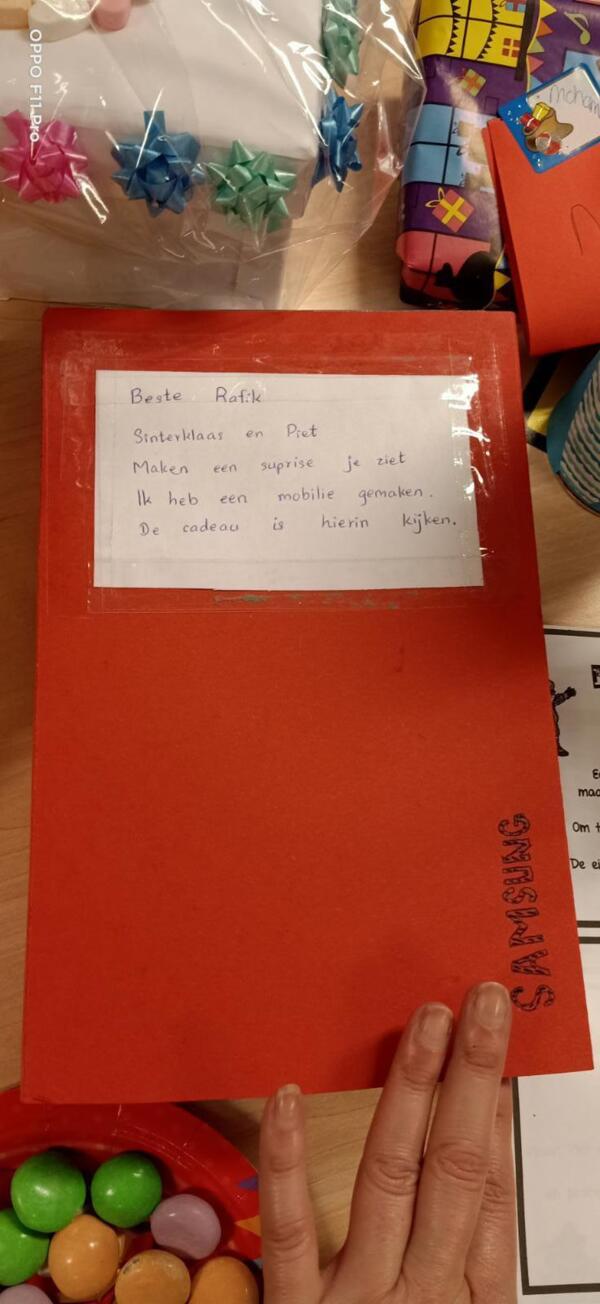 OPPO F11 Pro
Beste Rafik
Sinterklaas en Piet
Maken een suprise je ziet
Ik heb een mobilie gemaken.
De cadeau is hierin kijken.
SAMSUNG
Om
De